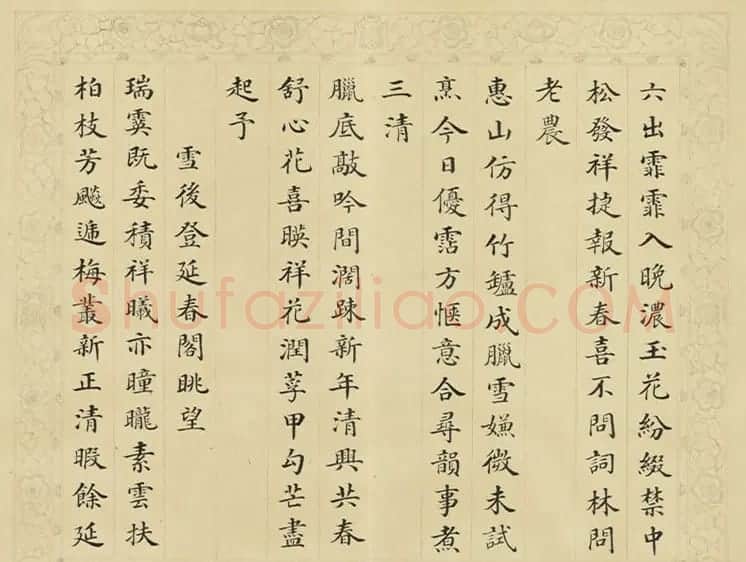 六出霏霏入晚濃玉花紛綴禁中
松發祥捷報新春喜不問詞林問
老農
惠山仿得竹鑪成臘雪嫌微未試
烹今日優霑方愜意合尋韻事煮
三清
臘底敲吟間濶踈新年清興共春
舒心花喜暎祥花潤莩甲勾芒盡
起予
雪後登延春閣眺望
瑞霙既委積祥曦亦曈曨素雲扶
柏枝芳飈遞梅叢新正清暇餘延
Shufaziliao.COM